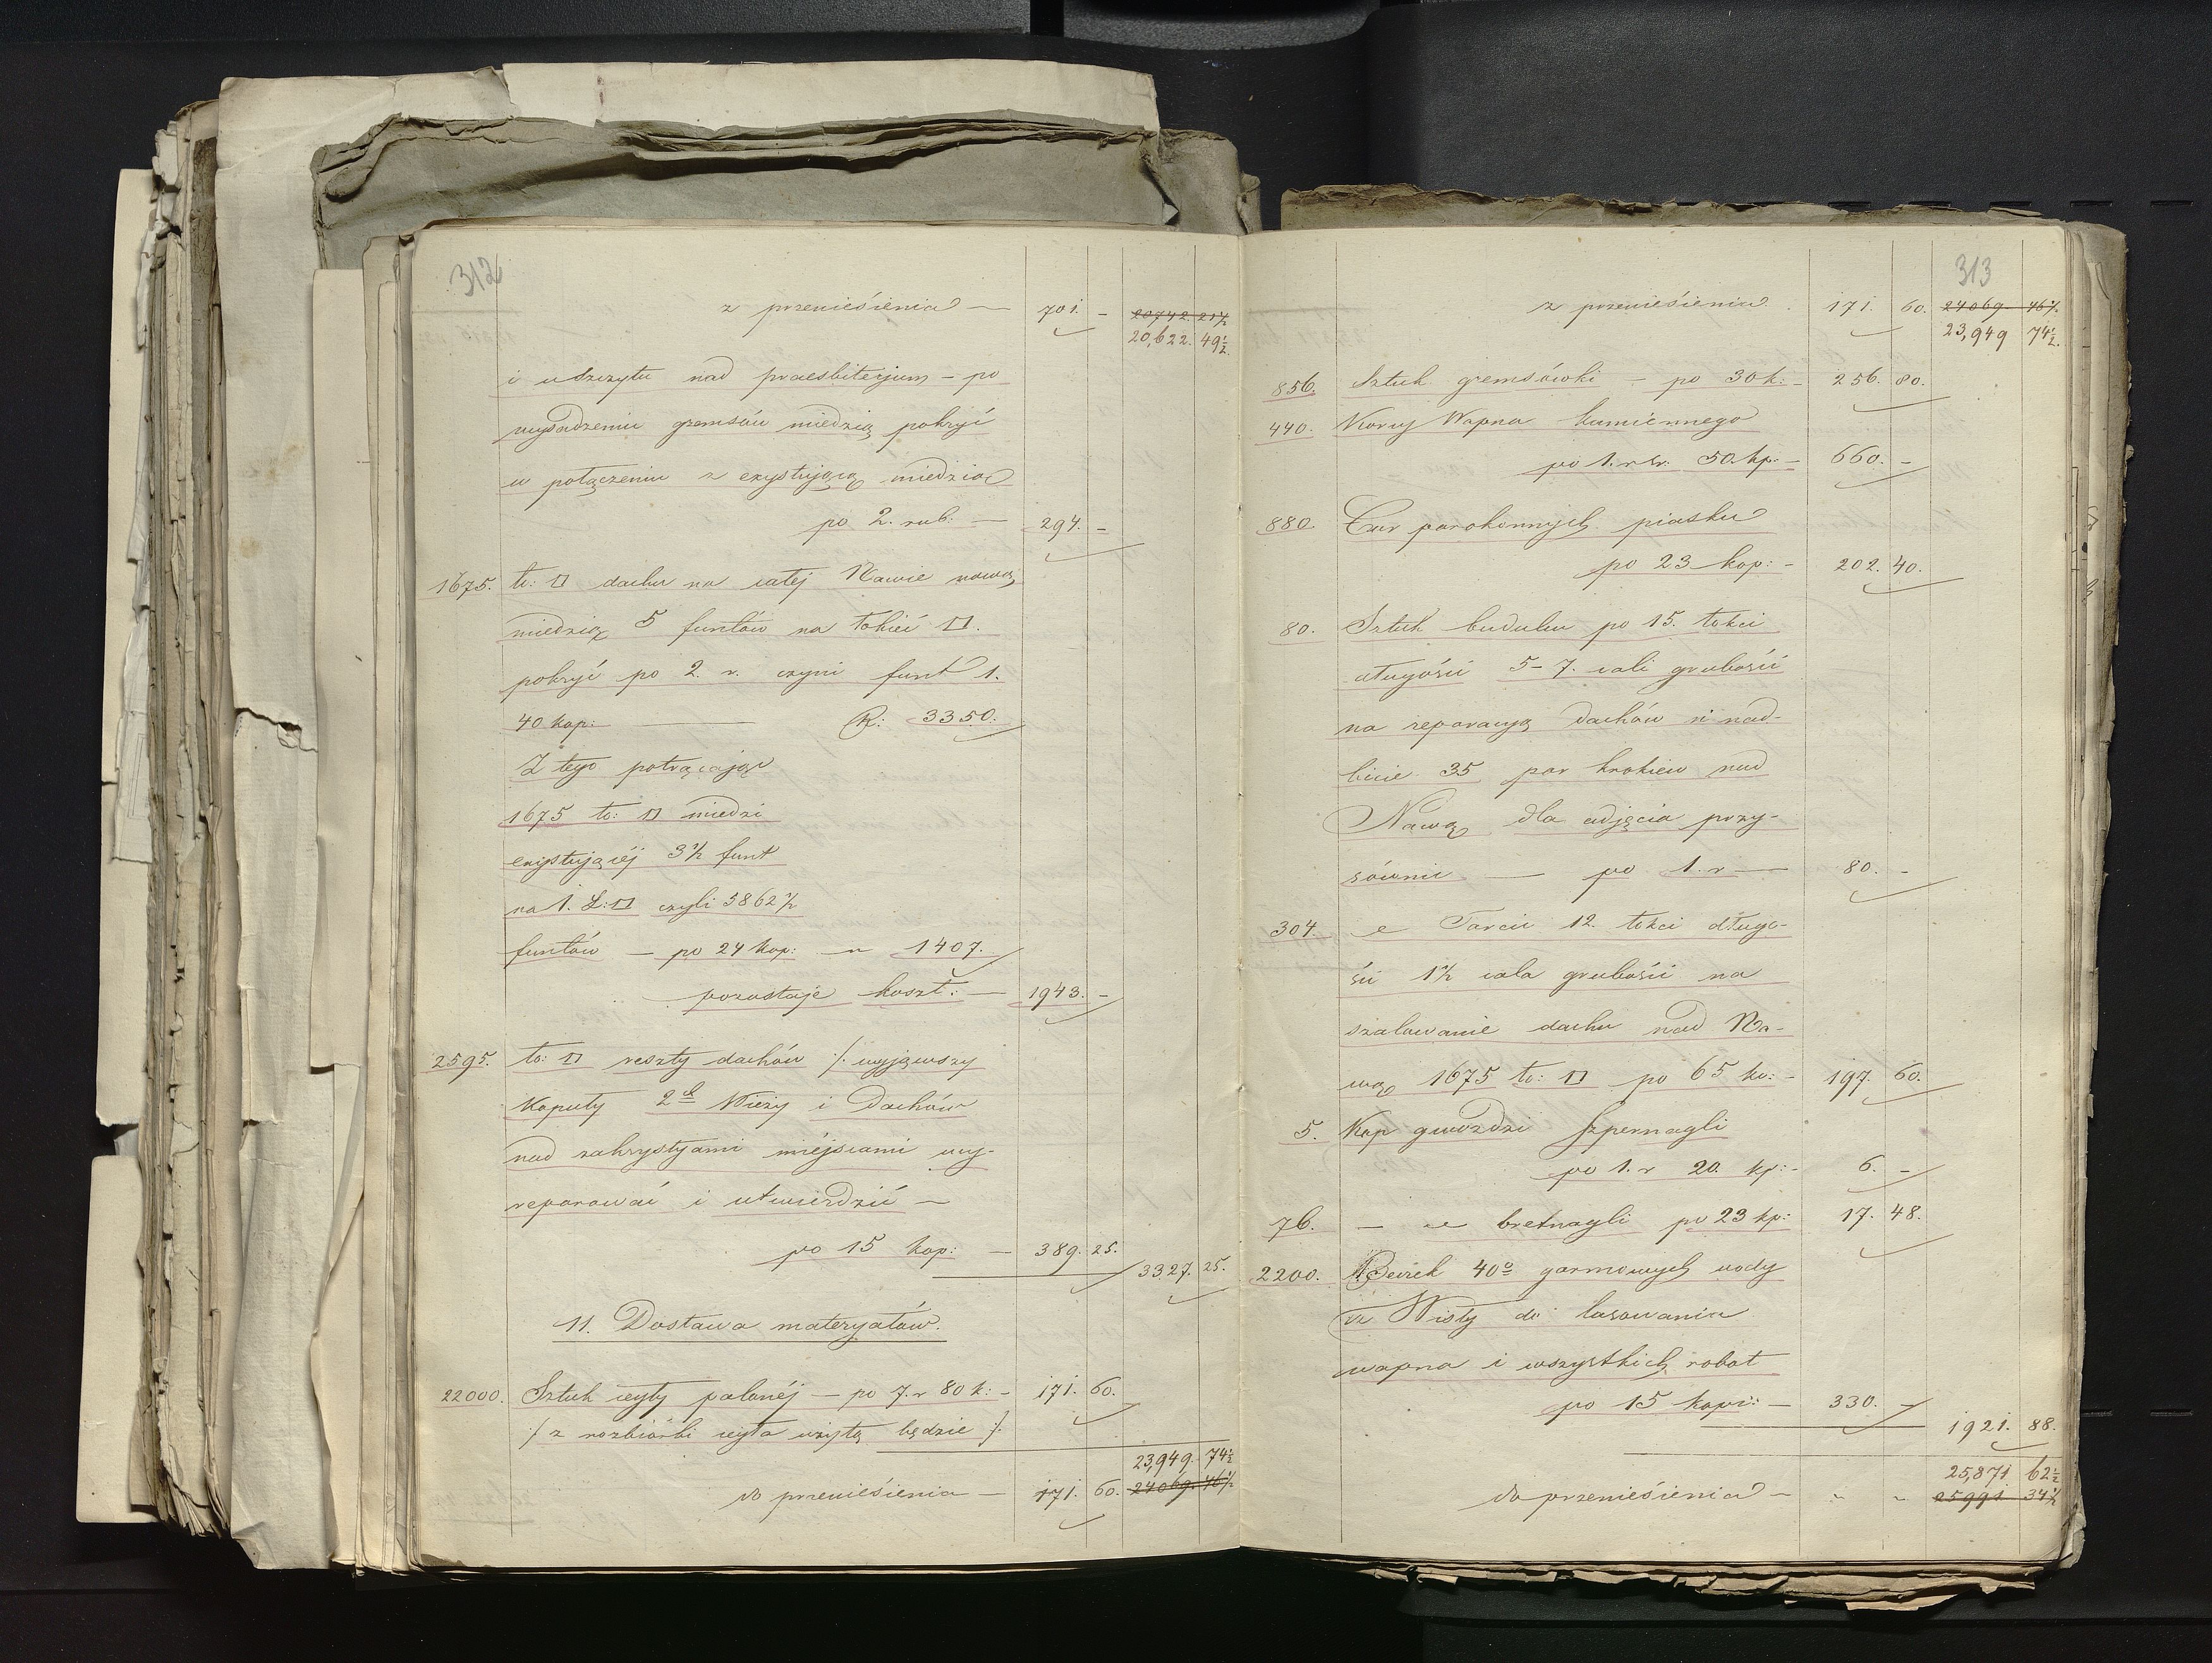 312
z przeniesienia — 701. –
20742. 21½
20,622. 49½
i udszytu nad praesbiterjum – po
wysadzeniu gremsów miedzią pokryć
w połączeniu z exystującą miedzią
po 2. rub. — 294. –
1675. ło: □ dachu na całej Nawie nową
miedzią 5 funtów na łokieć □.
pokryć po 2. r. czyni funt 1.
40 kop: — R: 3350.
Z tego potrącając
1675 ło: □ miedzi
exystującéj 3½ funt
na 1. Ł: □ czyli 5862½
funtów — po 24 kop: — „ 1407.
pozostaje koszt: — 1943. –
2595. ło: □ reszty dachów /: wyjąwszy
Kopuły 2ch Wieży i Dachów
nad zakrystyami miéjscami wy-
reparować i utwierdzić —
po 15 kop: — 389. 25.
3327. 25.
11. Dostawa materyałów.
22000. Sztuk cegły palonéj — po 7. r 80 k: – 171. 60.
/: z rozbiórki cegła użytą będzie :/
23,949. 74½
do przeniesienia — 171. 60. 24069. 46½
313
z przeniesienia 171. 60. 24069. 46½.
23,949 74½.
856. Sztuk gremsówki – po 30 k: – 256. 80.
440. Korcy Wapna kamiénnego
po 1. r sr. 50. kp: – 660. –
880. Fur parokonnych piasku
po 23 kop: – 202. 40.
80. Sztuk budulcu po 15. łokci
długości 5–7. cali grubości
na reparacyą dachów i nad-
bicie 35 par krokiew nad
Nawą dla odjęcia przy-
sównic — po 1. r — 80. –
304. „ Tarcic 12. łokci długo-
ści 1½ cala grubości na
szalowanie dachu nad Na-
wą 1675 ło: □ po 65 ko: – 197. 60.
5. Kop gwoździ szpernagli
po 1. r 20. kp: – 6. –
76. — „ bretnagli po 23 kp: 17. 48.
2200. Beczek 40o garncowych wody
z Wisły do lasowania
wapna i wszystkich robot
po 15 kopi: — 330. –
1921. 88.
25,871 62½
do przeniesienia — „ „ 25991 34½